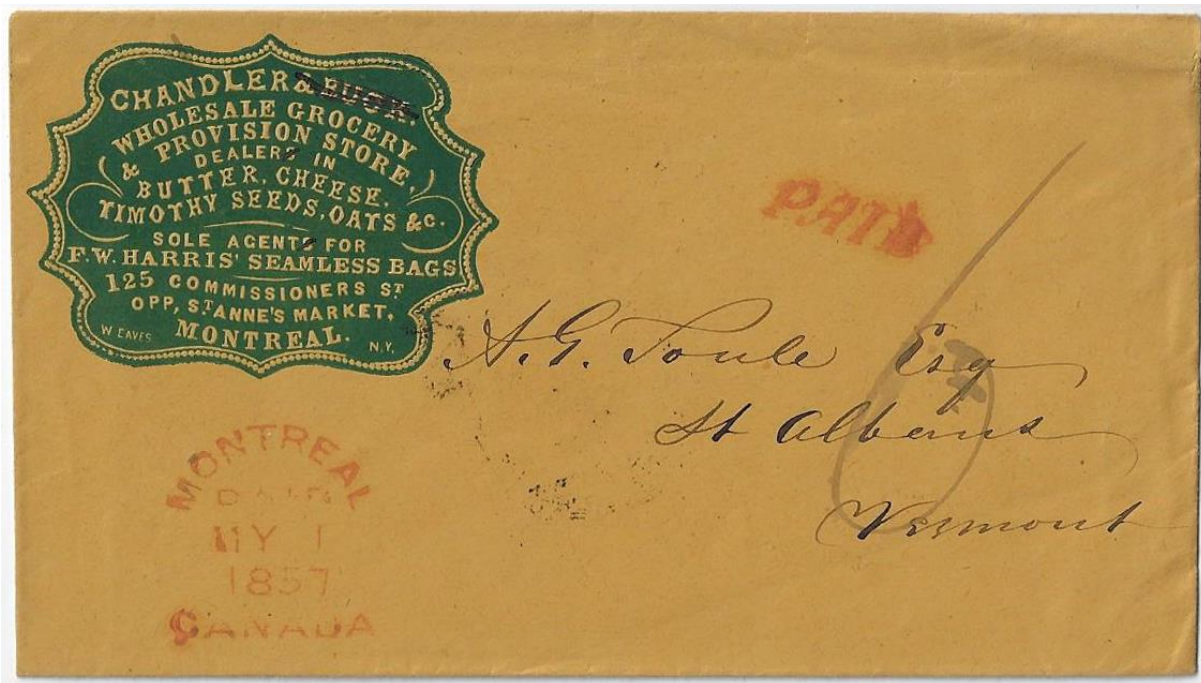 CHANDLER & BUCK.
WHOLESALE GROCERY
& PROVISION STORE,
DEALERS IN
BUTTER, CHEESE,
TIMOTHY SEEDS, OATS &C.
SOLE AGENTS FOR
F.W. HARRIS' SEAMLESS BAGS
125 COMMISSIONERS ST
OPP, ST ANNE'S MARKET,
MONTREAL.
W EAVES N.Y.
PAID
A. G. Soule Esq
St Albans
Vermont
MONTREAL
MY 1
1857
CANADA